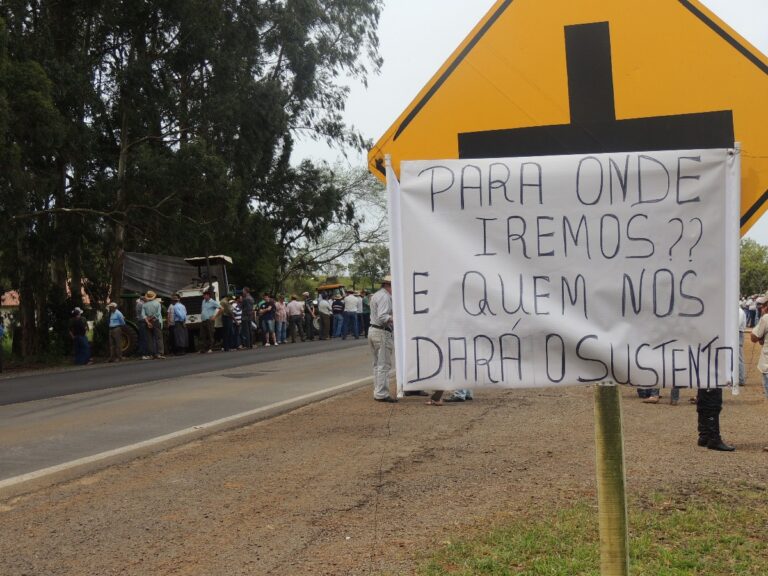 PARA ONDE
IREMOS??
E QUEM NOS
DARÁ O SUSTENTO